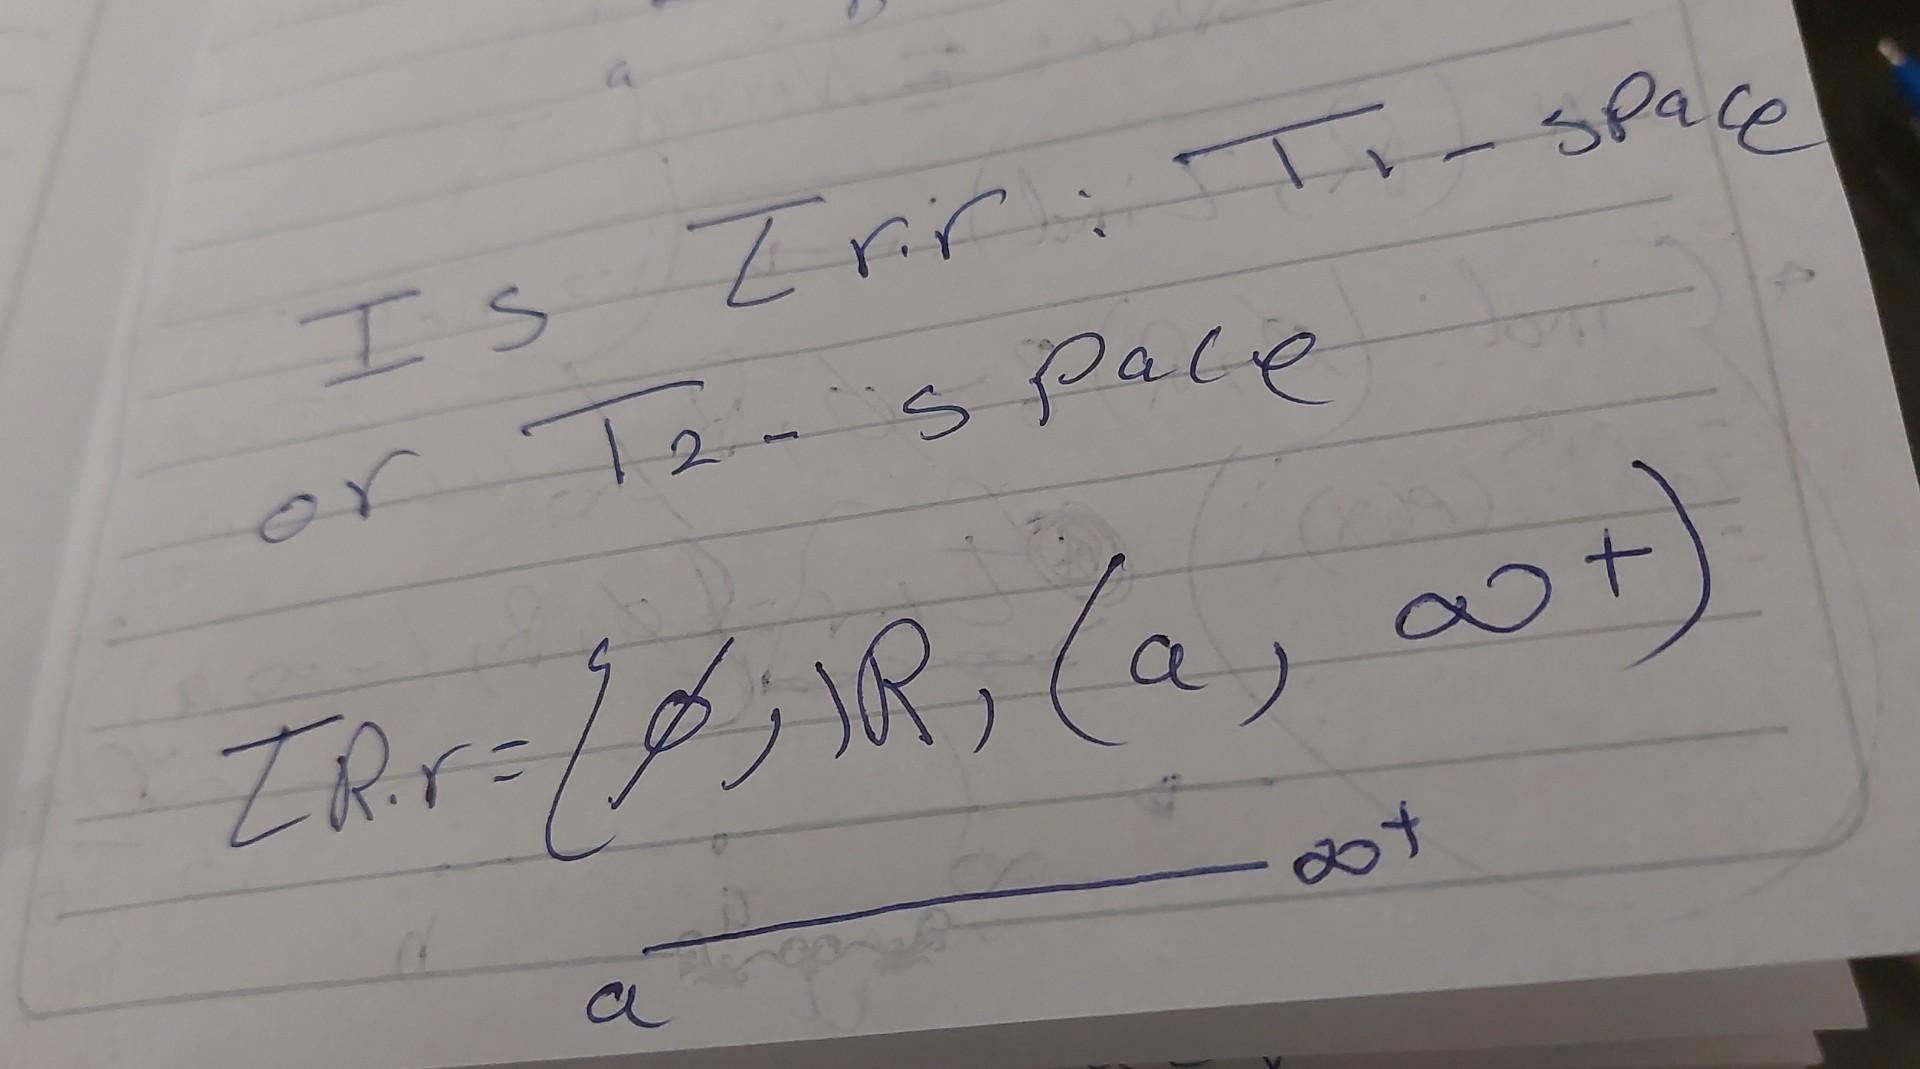 Is τr.r : T1 - space
or T2 - space
τR.r = {φ, ℝ, (a, ∞+)
a ∞+